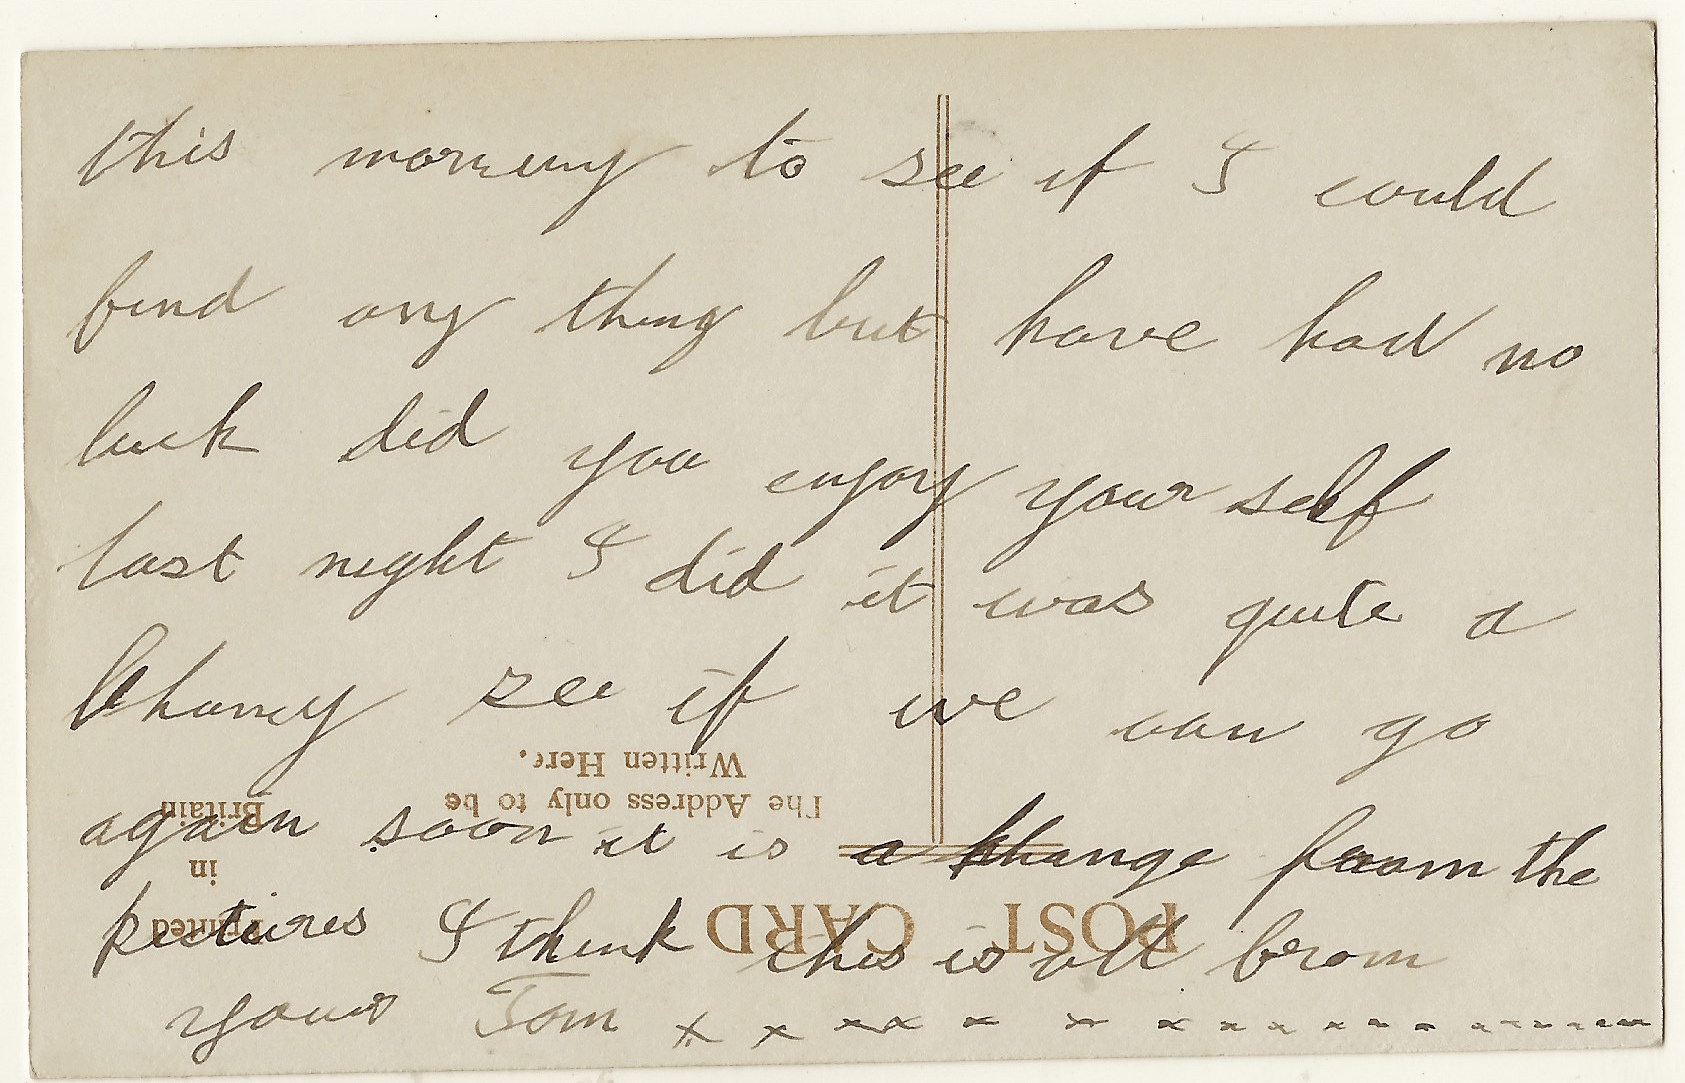 this morning to see if I could
find any thing but have had no
luck did you enjoy your self
last night I did it was quite a
change see if we can go
Written Here.
The Address only to be
Britain
again soon it is a change from the
in
pictures I think this is all from
Printed
POST CARD
yours Tom x x x x x x x x x x x x x x x x x x